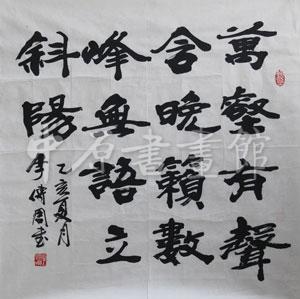 萬壑有聲
含晚籟數
峰無語立
斜陽
乙亥夏月
李傳周書
中原書畫館